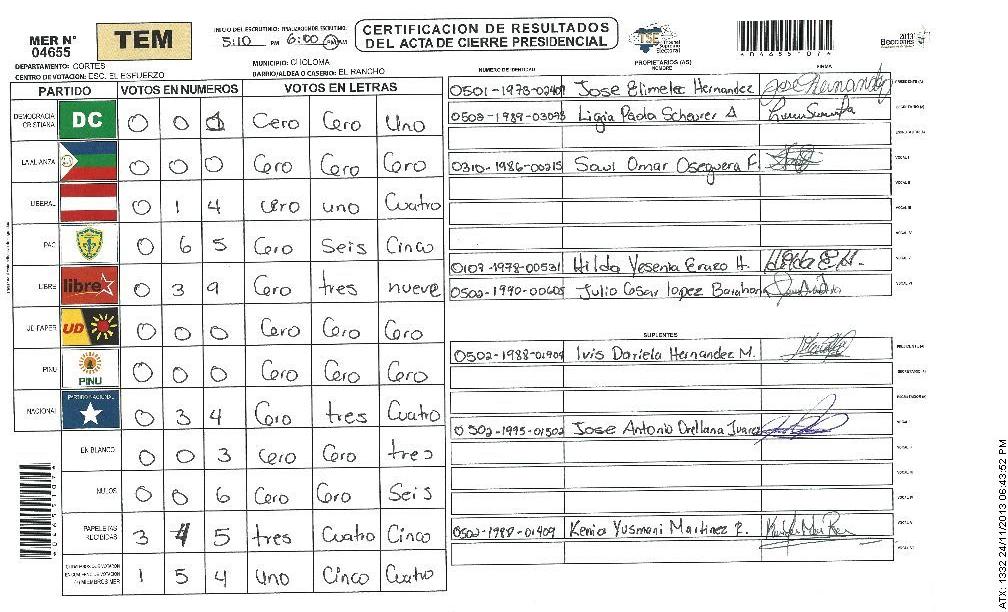 MER N° 04655
TEM
INICIO DEL ESCRUTINIO: FINALIZACION DE ESCRUTINIO:
5:10 PM 6:00 PM
CERTIFICACION DE RESULTADOS
DEL ACTA DE CIERRE PRESIDENCIAL
TSE Tribunal Supremo Electoral
DEPARTAMENTO: CORTES
MUNICIPIO: CHOLOMA
CENTRO DE VOTACION: ESC. EL ESFUERZO
BARRIO/ALDEA O CASERIO: EL RANCHO
PARTIDO VOTOS EN NUMEROS VOTOS EN LETRAS
DEMOCRACIA CRISTIANA DC 0 0 1 Cero Cero Uno
LA ALIANZA 0 0 0 Cero Cero Cero
LIBERAL 0 1 4 Cero uno Cuatro
PAC 0 6 5 Cero Seis Cinco
LIBRE libre 0 3 9 Cero tres nueve
UD FAPER UD 0 0 0 Cero Cero Cero
PINU PINU 0 0 0 Cero Cero Cero
NACIONAL PARTIDO NACIONAL 0 3 4 Cero tres Cuatro
EN BLANCO 0 0 3 Cero Cero tres
NULOS 0 0 6 Cero Cero Seis
PAPELETAS RECIBIDAS 3 4 5 tres Cuatro Cinco
1 5 4 Uno Cinco Cuatro
NUMERO DE IDENTIDAD PROPIETARIOS (AS) NOMBRE FIRMA
0501-1978-02401 Jose Elimelec Hernandez Jose Hernandez PRESIDENTE (A)
0502-1989-03075 Ligia Paola Scheurer A SECRETARIO (A)
0310-1986-00215 Saul Omar Oseguera F. VOCAL I
VOCAL II
VOCAL III
VOCAL IV
0107-1978-00531 Hilda Yesenia Erazo H. Hilda E H. VOCAL V
0502-1990-00605 Julio Cesar lopez Barahona VOCAL VI
SUPLENTES
0502-1988-01904 Ivis Dariela Hernandez M. PRESIDENTE (A)
SECRETARIO (A)
0502-1995-01502 Jose Antonio Orellana Juarez VOCAL I
0502-1989-01409 Kenia Yusmani Martinez R. VOCAL V
VOCAL VI
ATX: 1332 24/11/2013 06:43:52 PM